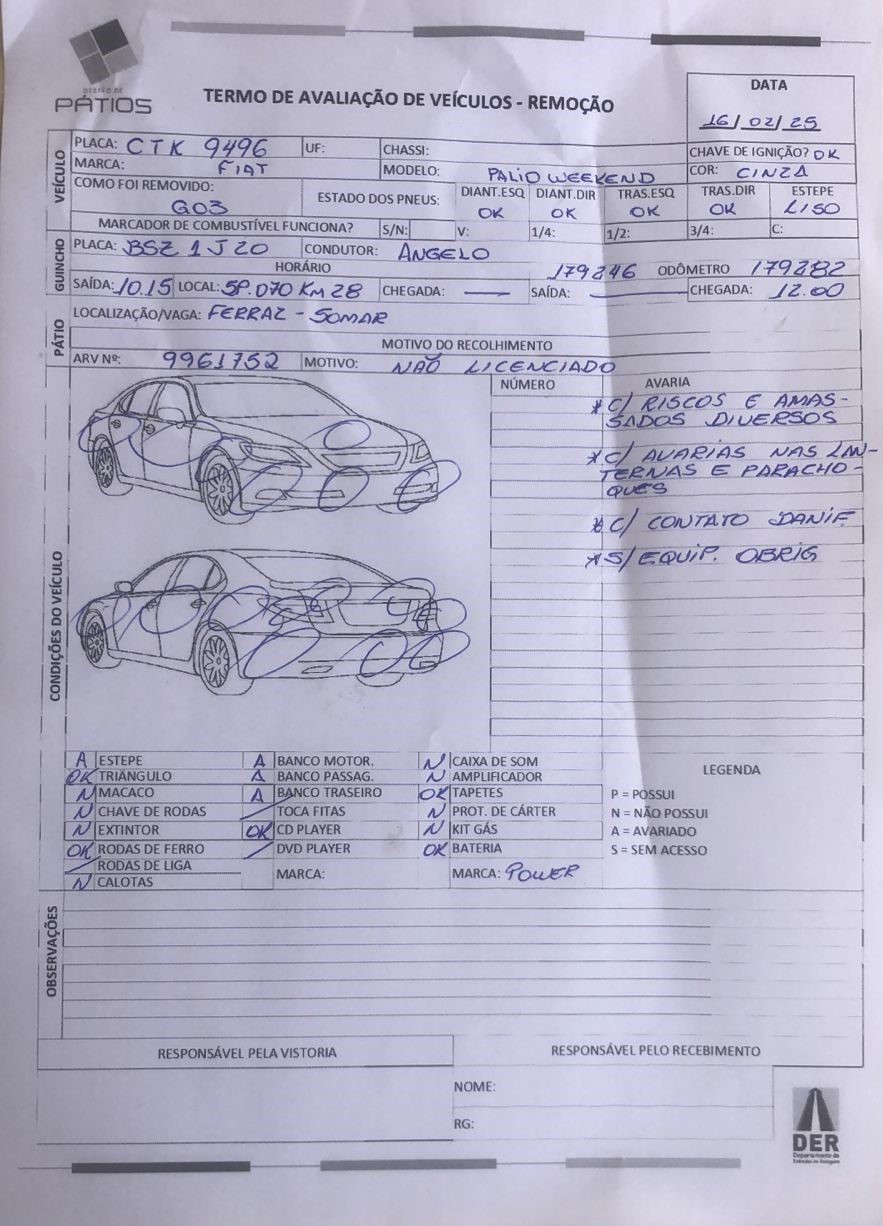 GESTÃO DE
PÁTIOS
TERMO DE AVALIAÇÃO DE VEÍCULOS - REMOÇÃO
DATA
16/02/25
VEÍCULO
PLACA: CTK 9496 UF: CHASSI: CHAVE DE IGNIÇÃO? OK
MARCA: FIAT MODELO: PALIO WEEKEND COR: CINZA
COMO FOI REMOVIDO: G03 ESTADO DOS PNEUS: DIANT.ESQ OK DIANT.DIR OK TRAS.ESQ OK TRAS.DIR OK ESTEPE LISO
MARCADOR DE COMBUSTÍVEL FUNCIONA? S/N: V: 1/4: 1/2: 3/4: C:
GUINCHO
PLACA: BSZ 1J20 CONDUTOR: ANGELO
HORÁRIO 179246 ODÔMETRO 179282
SAÍDA: 10.15 LOCAL: SP.070 KM 28 CHEGADA: — SAÍDA: — CHEGADA: 12.00
PÁTIO
LOCALIZAÇÃO/VAGA: FERRAZ - SOMAR
MOTIVO DO RECOLHIMENTO
ARV Nº: 9961752 MOTIVO: NÃO LICENCIADO
CONDIÇÕES DO VEÍCULO
NÚMERO AVARIA
* C/ RISCOS E AMAS-
SADOS DIVERSOS
* C/ AVARIAS NAS LAN-
TERNAS E PARACHO-
QUES
* C/ CONTATO DANIF.
* S/ EQUIP. OBRIG
A ESTEPE A BANCO MOTOR. N CAIXA DE SOM LEGENDA
OK TRIÂNGULO A BANCO PASSAG. N AMPLIFICADOR
N MACACO A BANCO TRASEIRO OK TAPETES P = POSSUI
N CHAVE DE RODAS / TOCA FITAS N PROT. DE CÁRTER N = NÃO POSSUI
N EXTINTOR OK CD PLAYER N KIT GÁS A = AVARIADO
OK RODAS DE FERRO / DVD PLAYER OK BATERIA S = SEM ACESSO
/ RODAS DE LIGA MARCA: MARCA: POWER
N CALOTAS
OBSERVAÇÕES
RESPONSÁVEL PELA VISTORIA RESPONSÁVEL PELO RECEBIMENTO
NOME:
RG:
DER
Departamento de
Estradas de Rodagem